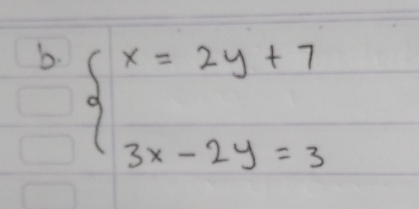 b. { x = 2y + 7
3x - 2y = 3